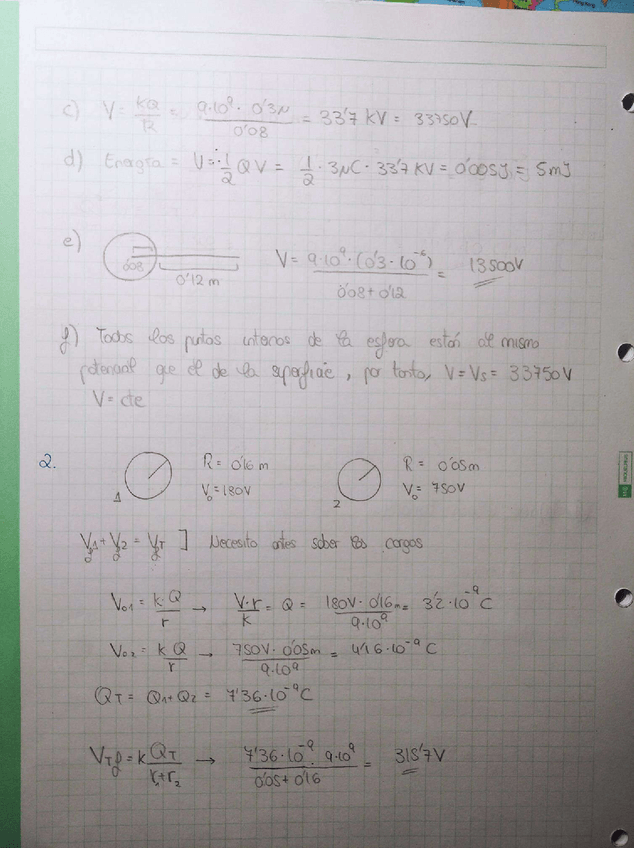 c) V = kQ/R = 9·10⁹ · 0'3μ / 0'08 = 33'7 kV = 33750V
d) Energía = U = 1/2 QV = 1/2 · 3μC · 33'7 KV = 0'005J = 5mJ
e) 0'08 0'12 m V = 9·10⁹ · (0'3·10⁻⁶) / 0'08+0'12 = 13500V
f) Todos los putos internos de la esfera están al mismo
potencial que el de la superficie, por tanto, V = Vs = 33750V
V = cte
2. 1 R = 0'16 m 2 R = 0'05m
V₀ = 180V V₀ = 750V
Vf1 + Vf2 = VT ] Necesito antes saber las cargas
V01 = k·Q/r → V·r/k = Q = 180V · 0'16m / 9·10⁹ = 3'2·10⁻⁹ C
V02 = kQ/r → 750V · 0'05m / 9·10⁹ = 4'16·10⁻⁹ C
QT = Q1 + Q2 = 7'36·10⁻⁹ C
VTf = k QT / r₁+r₂ → 7'36·10⁻⁹ · 9·10⁹ / 0'05+0'16 = 315'7V